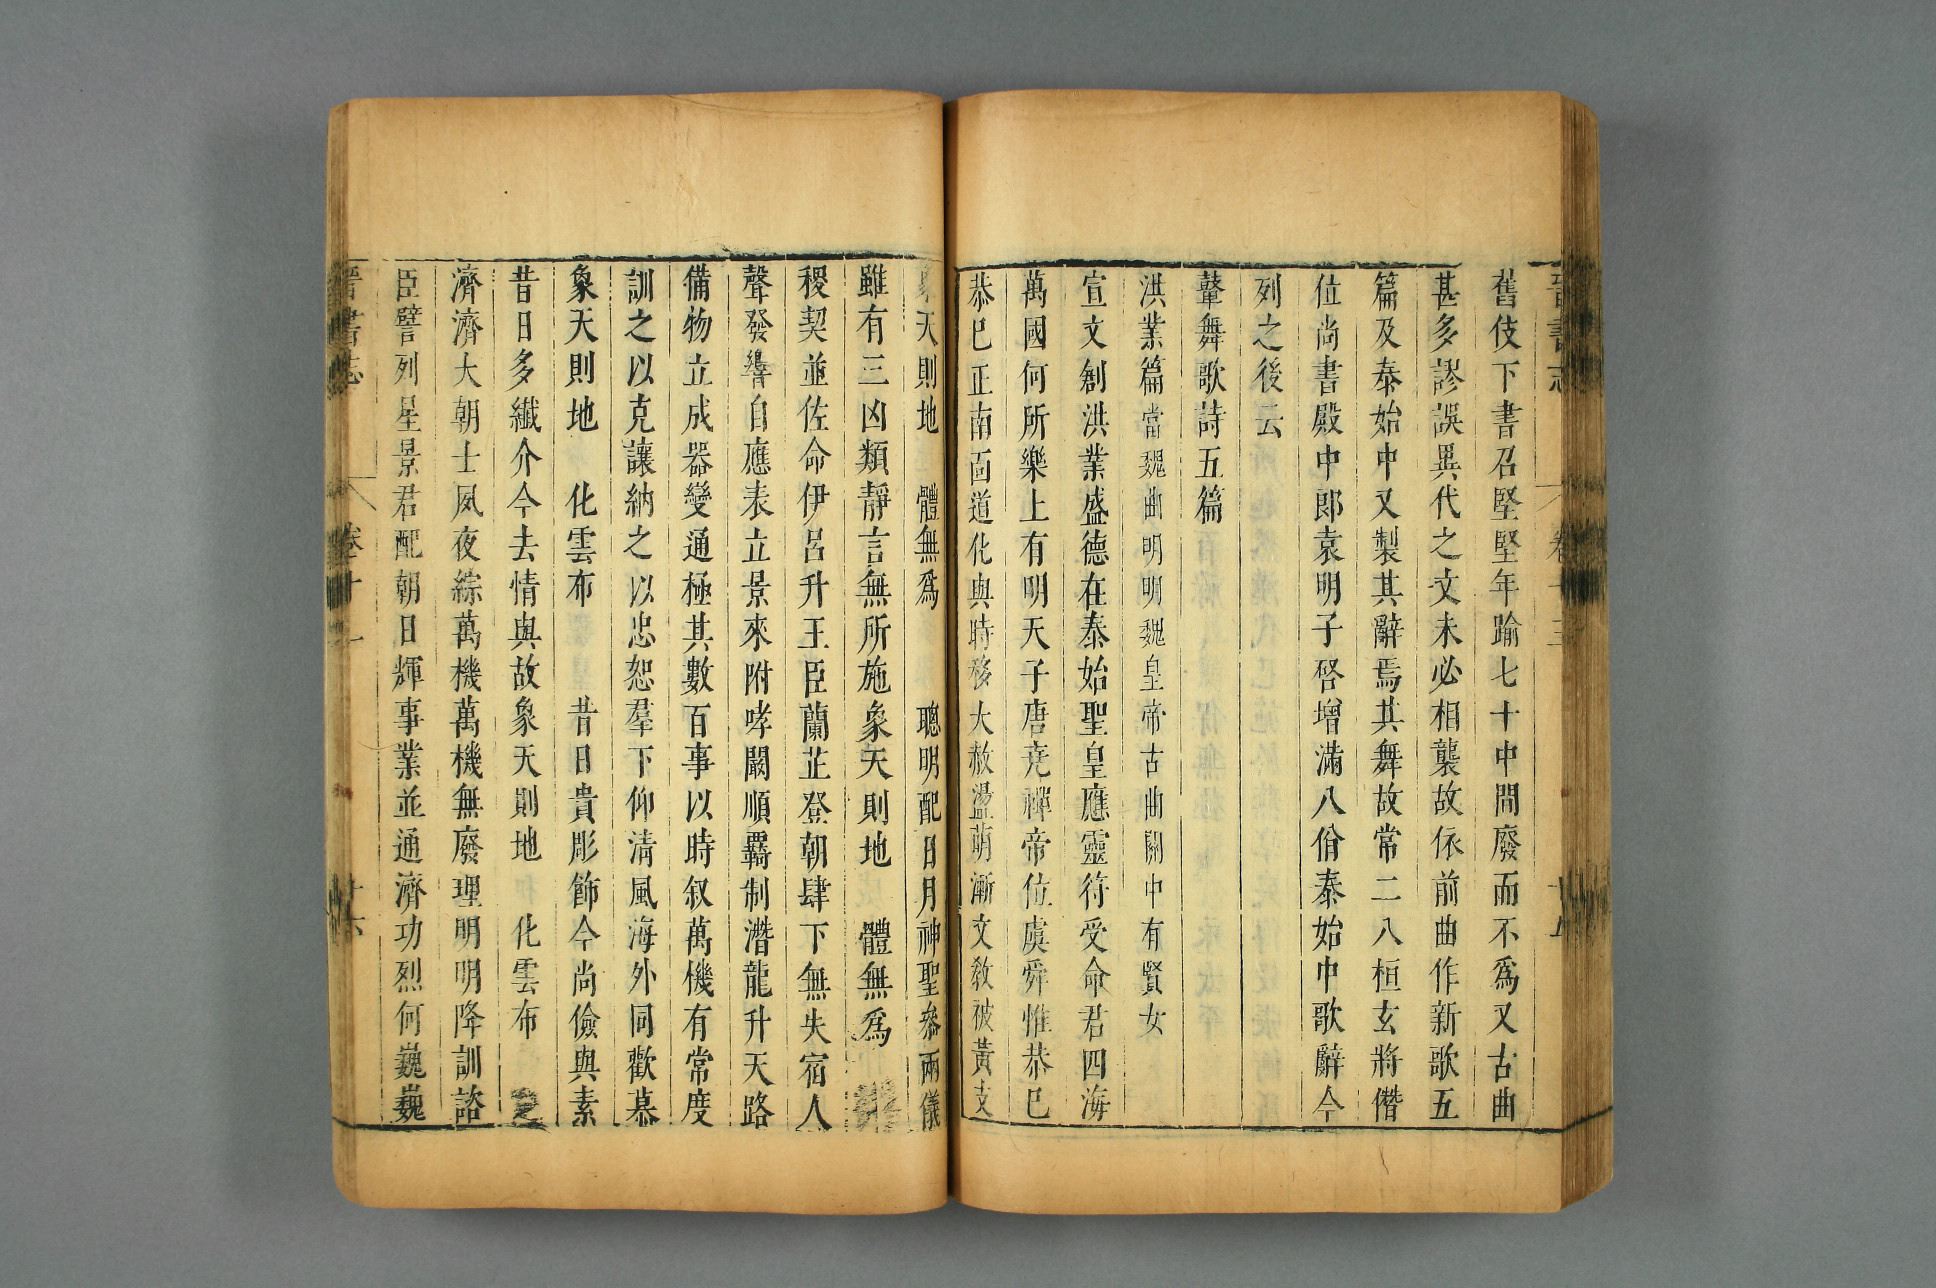 晉書志 卷十三 十五
舊伎下書召堅堅年踰七十中間廢而不爲又古曲
甚多謬誤異代之文未必相襲故依前曲作新歌五
篇及泰始中又製其辭焉其舞故常二八桓玄將僭
位尚書殿中郎袁明子啓增滿八佾泰始中歌辭今
列之後云
鼙舞歌詩五篇
洪業篇當魏曲明明魏皇帝古曲關中有賢女
宣文創洪業盛德在泰始聖皇應靈符受命君四海
萬國何所樂上有明天子唐尭禪帝位虞舜惟恭巳
恭巳正南面道化與時移大赦盪萌漸文敎被黃支
象天則地 體無爲 聰明配日月神聖參兩儀
雖有三凶類靜言無所施象天則地 體無爲
稷契並佐命伊呂升王臣蘭芷登朝肆下無失宿人
聲發響自應表立景來附哮闞順羈制濳龍升天路
備物立成器變通極其數百事以時叙萬機有常度
訓之以克讓納之以忠恕羣下仰清風海外同歡慕
象天則地 化雲布 昔日貴彫飾今尚儉與素
昔日多纖介今去情與故象天則地 化雲布
濟濟大朝士夙夜綜萬機萬機無廢理明明降訓諮
臣譬列星景君配朝日輝事業並通濟功烈何巍巍
晉書志 卷十 十六